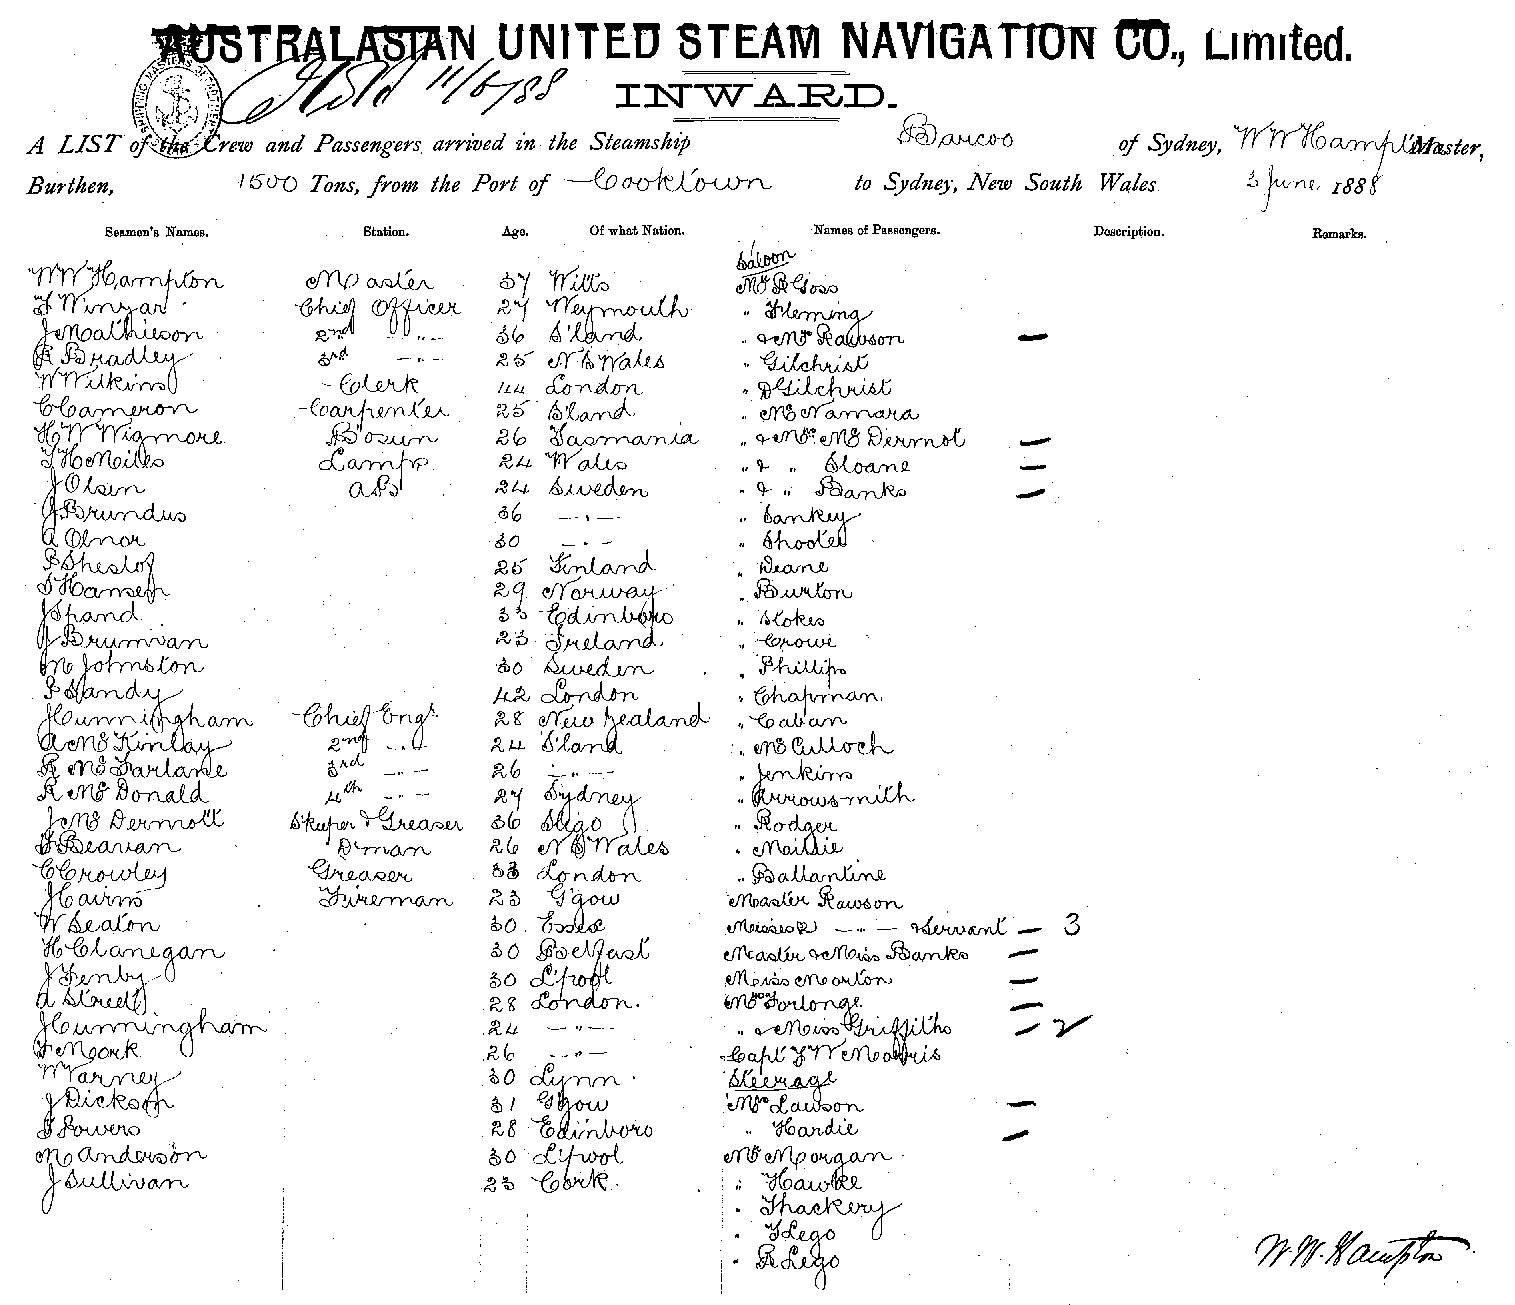 AUSTRALASIAN UNITED STEAM NAVIGATION CO., Limited.
11/6/88
INWARD.
A LIST of the Crew and Passengers arrived in the Steamship Barcoo of Sydney, W W Hampton Master,
Burthen, 1500 Tons, from the Port of Cooktown to Sydney, New South Wales 3 June 1888
Seamen's Names. Station. Age. Of what Nation. Names of Passengers. Description. Remarks.
Saloon
W W Hampton Master 37 Witts Mr R Goss
F Winyar Chief Officer 27 Weymouth " Fleming
J Mathieson 2nd -"- 36 S'land " & Mrs Rawson —
R Bradley 3rd -"- 25 N S Wales " Gilchrist
W Wilkins Clerk 44 London " D Gilchrist
C Cameron Carpenter 25 S'land " McNamara
H W Wigmore Bosun 26 Tasmania " & Mrs McDermot —
T H Miles Lamps 24 Wales " & " Sloane —
J Olsen AB 24 Sweden " & " Banks —
J Brundus 36 -"- " Sankey
A Olnor 30 -"- " Shooter
P Sheslof 25 Finland " Deane
S Hansen 29 Norway " Burton
J Spand 33 Edinboro " Stokes
J Brumvan 23 Ireland " Crowe
M Johnston 30 Sweden " Phillips
P Handy 42 London " Chapman
J Cunningham Chief Engr 28 New Zealand " Caban
A McKinlay 2nd -"- 24 S'land " McCulloch
R McFarlane 3rd -"- 26 -"- " Jenkins
R McDonald 4th -"- 27 Sydney " Arrowsmith
J McDermott S'keeper & Greaser 36 Sligo " Rodger
F Beavan D'man 26 N S Wales " Maillie
C Crowley Greaser 33 London " Ballantine
J Cairns Fireman 23 G'gow Master Rawson
W Seaton 30 Essex -"- & Servant — 3
H Clanegan 30 Belfast Master & Miss Banks —
J Fenby 30 L'pool Miss Morton —
A Street 28 London Mrs Forlonge —
J Cunningham 24 -"- " & Miss Griffiths — 2
F Mork 26 -"- Capt F W Morris
W Varney 30 Lynn Steerage
J Dickson 31 G'gow Mrs Lawson —
J Powers 28 Edinboro " Hardie —
M Anderson 30 L'pool Mr Morgan
J Sullivan 23 Cork " Hawke
" Thackery
" F Lego
" R Lego
W. W. Hampton